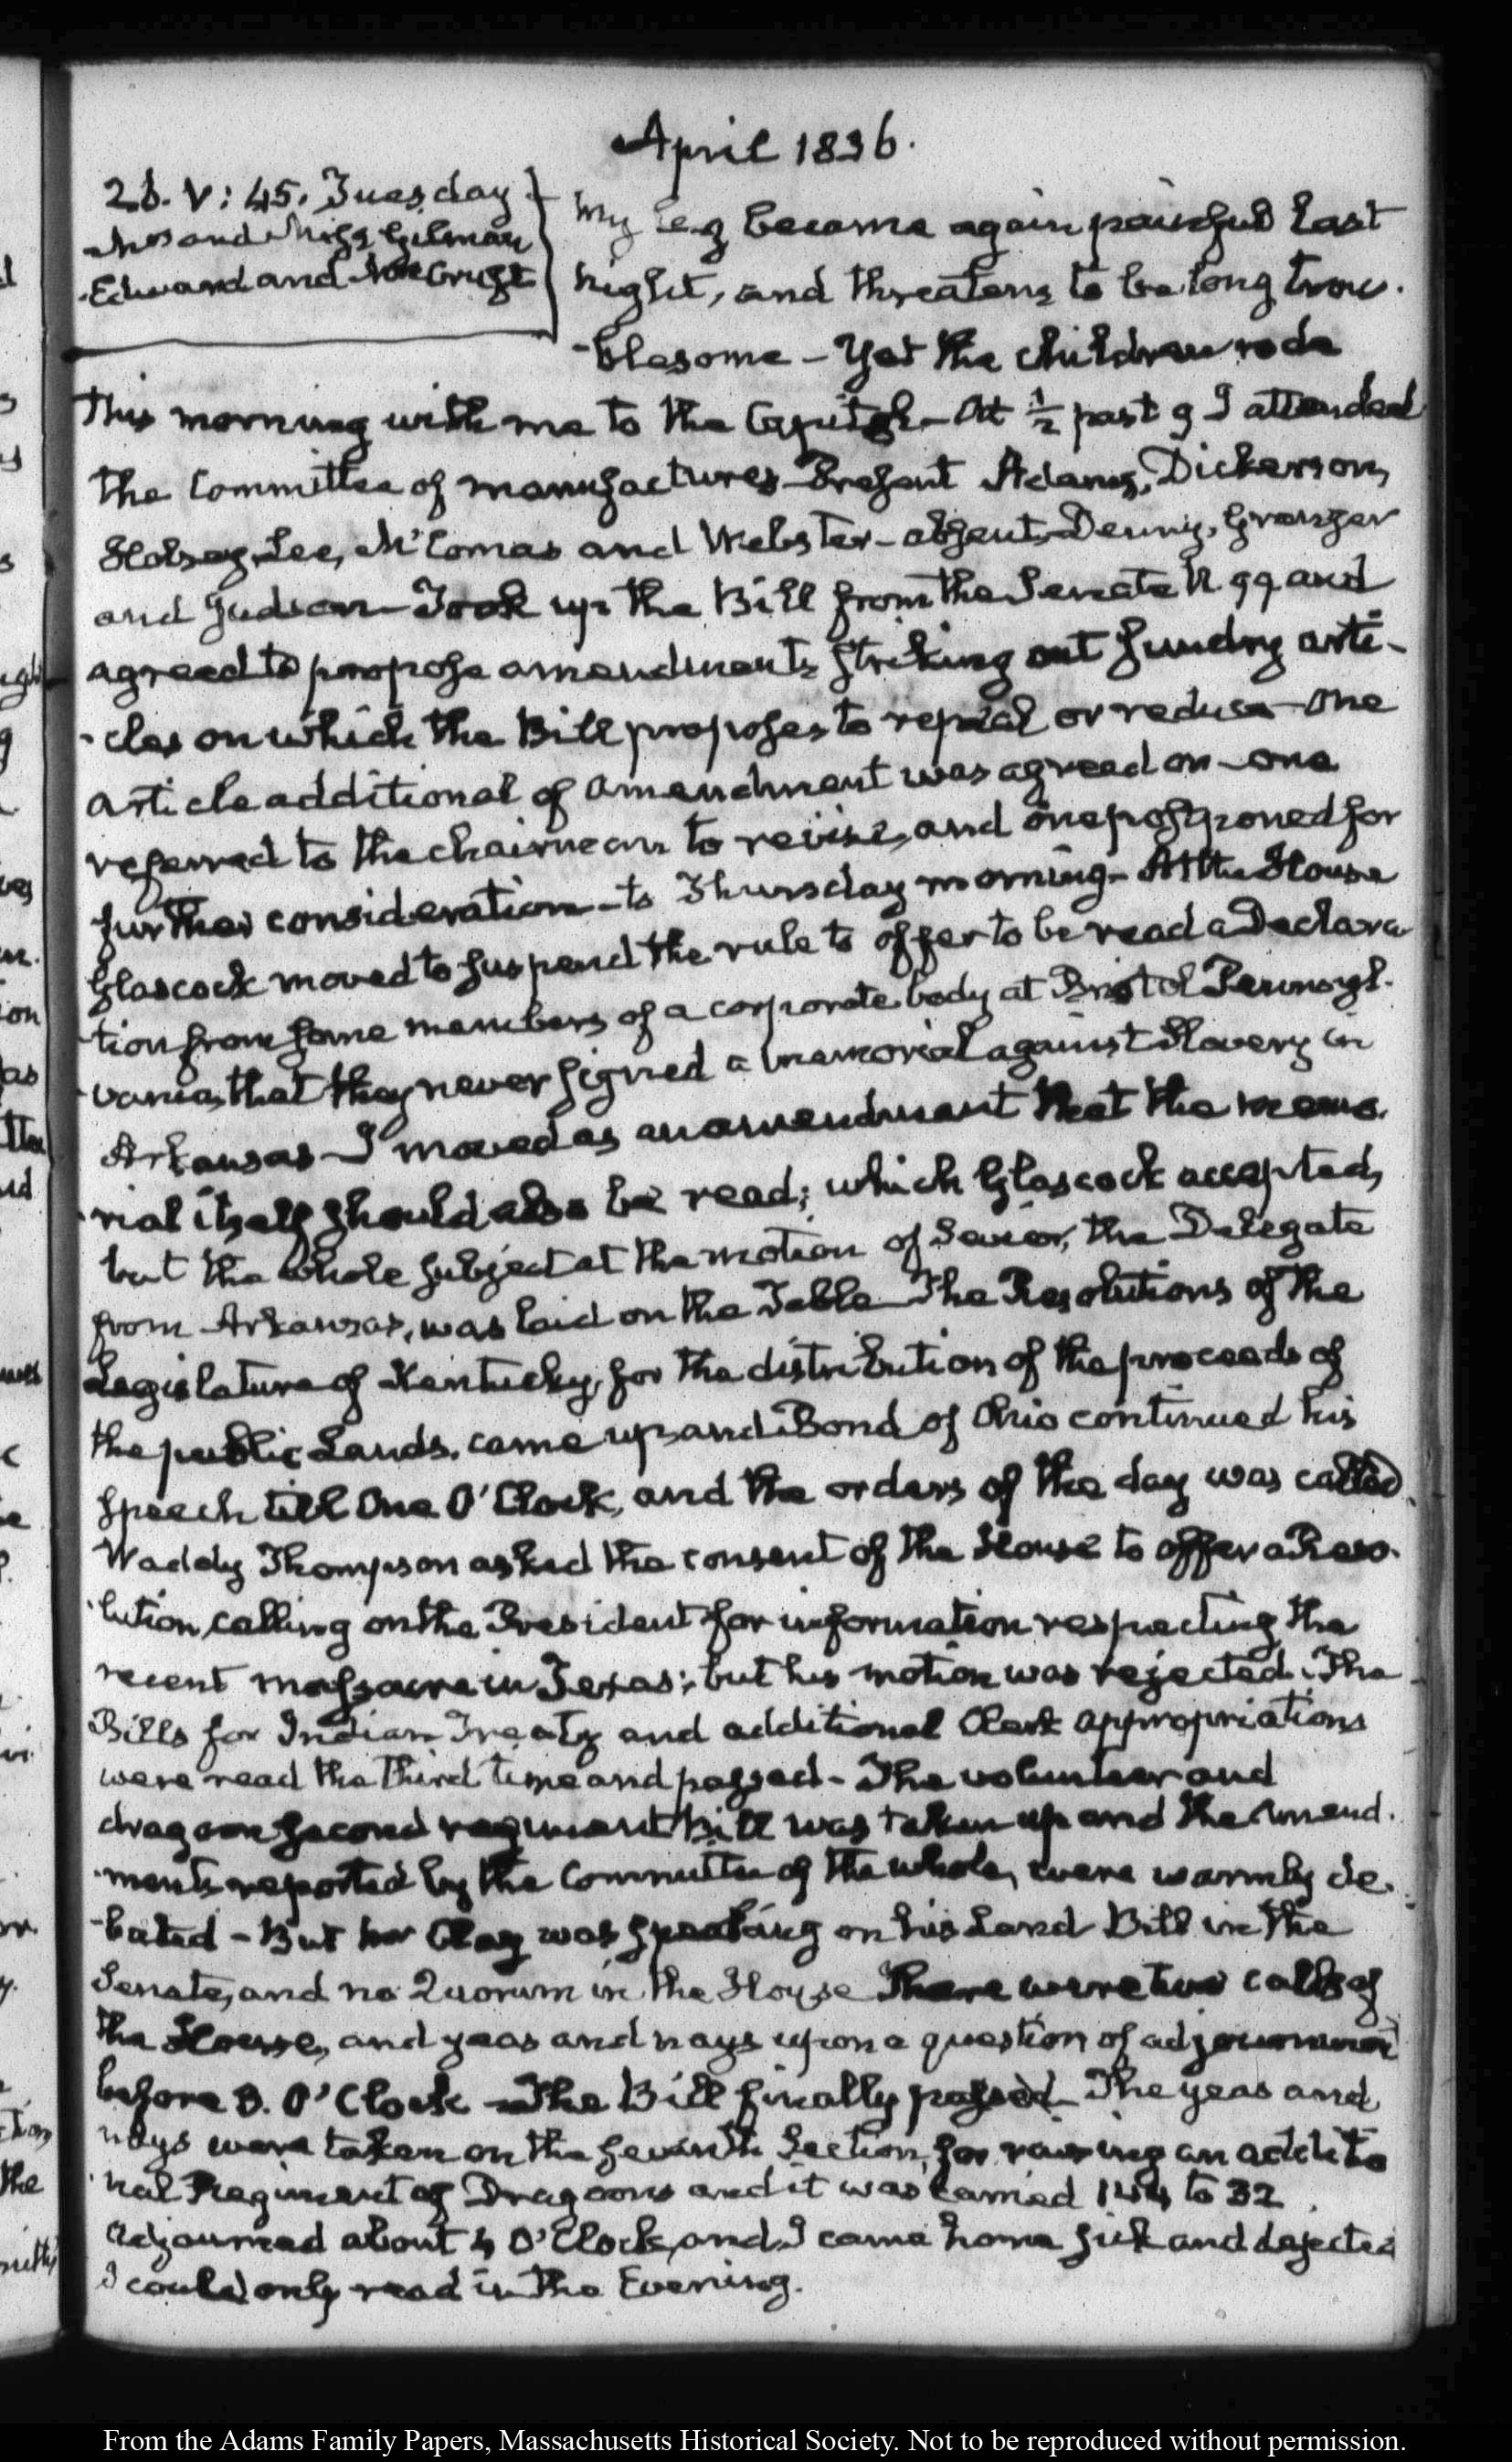 April 1836.
26. V: 45. Tuesday
Mrs and Miss Gilman
Edward and
My leg became again painful last
night, and threatens to be long trou-
-blesome – Yet the children rode
this morning with me to the Capitol – At ½ past 9 I attended
the Committee of manufactures – Present Adams, Dickerson,
Halsey, Lee, McComas and Webster – absent, Denny, Granger
and Judson – Took up the Bill from the Senate N. 99 and
agreed to propose amendments striking out sundry arti-
-cles on which the Bill proposes to repeal or reduce – One
article additional of amendment was agreed on – one
referred to the chairman to revise, and one postponed for
further consideration – to Thursday morning – At the House
Glascock moved to suspend the rule to offer to be read a Declara
-tion from some members of a corporate body at Bristol Pennsyl-
-vania, that they never signed a memorial against Slavery in
Arkansas – I moved as an amendment that the memo-
-rial itself should also be read; which Glascock accepted,
but the whole subject at the motion of Sevier, the Delegate
from Arkansas, was laid on the Table – The Resolutions of the
Legislature of Kentucky, for the distribution of the proceeds of
the public Lands, came up, and Bond of Ohio continued his
speech till One O'Clock, and the orders of the day was called
Waddy Thompson asked the consent of the House to offer a Reso-
-lution, calling on the President for information respecting the
recent massacre in Texas; but his motion was rejected. The
Bills for Indian Treaty and additional Clerk appropriations
were read the third time and passed – The volunteer and
dragoon second regiment bill was taken up and the Amend-
-ments reported by the Committee of the whole, were warmly de-
-bated – But Mr Clay was speaking on his Land Bill in the
Senate, and no Quorum in the House There were two calls of
the House, and yeas and nays upon a question of adjournment
before 3. O'Clock – The Bill finally passed – The yeas and
nays were taken on the seventh Section, for raising an additio
-nal Regiment of Dragoons and it was carried 144 to 32
Adjourned about 4 O'Clock, and I came home sick and dejected
I could only read in the Evening.
From the Adams Family Papers, Massachusetts Historical Society. Not to be reproduced without permission.